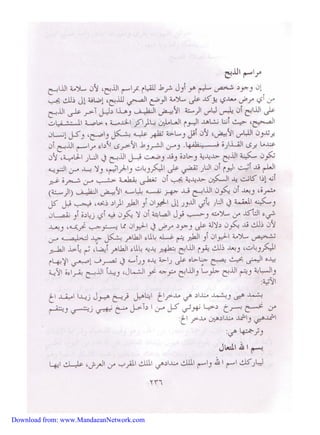 مراسم الذبح
إن وجود شخص سليم هو أول شرط للقيام بمراسم الذبح، لأن سلامة الذابح
من أي مرض معدي يؤكد على سلامة الوضع الصحي للذبح، إضافة إلى ذلك يجب
على الذابح أن يلبس لباس الرستة الأبيض النظيف وهذا دليل آخر على الذبح
الصحيح، حيث أننا نشاهد اليوم العاملين بالمراكز الخدمية، وخاصة المستشفيات
يرتدون اللباس الأبيض، لأن أقل وساخة تظهر عليه بشكل واضح، وكل إنسان
عندما يرى القذارة فسينظفها. ومن الشروط الأخرى لأداء مراسم الذبح أن
تكون سكينة الذبح حديدية وحادة وقد وضعت قبل الذبح في النار الحامية، لأن
العلم قد أثبت اليوم أن النار تقضي على الميكروبات والجراثيم، ولا بد من التنويه
أنه إذا كانت يد السكين حديدية يجب أن تغطى بقطعة خشب من شجرة غير
مثمرة، وبعد أن يكون الذابح قد جهز نفسه بلباسه الأبيض النظيف (الرستة)
وسكينه المعقمة في النار يأتي الدور إلى الحيوان أو الطير المراد ذبحه، فيجب قبل كل
شيء التأكد من سلامته وحسب قول الصابئة أن لا يكون فيه أي زيادة أو نقصان
لأن ذلك قد يكون دلالة على وجود مرض في الحيوان مما يستوجب تحريمه، وبعد
تشخيص سلامة الحيوان أو الطير يتم غسله بالماء الطاهر بشكل جيد لتخليصه من
الميكروبات، وبعد ذلك يقوم الذابح بتطهير يديه بالماء الطاهر أيضا، ثم يأخذ الطير
بيده اليمنى بحيث يصبح جناحاه على راحة يده ورأسه في تصرف إصبعي الإبهام
والسبابة ويتم الذبح جلوساً والذابح متوجه نحو الشمال، ويبدأ الذبح بقراءة الآية
الآتية:
بشمد هيي وبشمد منداد هي مدخرالخ
وترجمتها هي:
بسم الله المتعال
ليباركك اسم الله واسم الملك مندادهي الملك المقرب من العرش، عليك ايها
٢٣٦
Download from: www.MandaeanNetwork.com